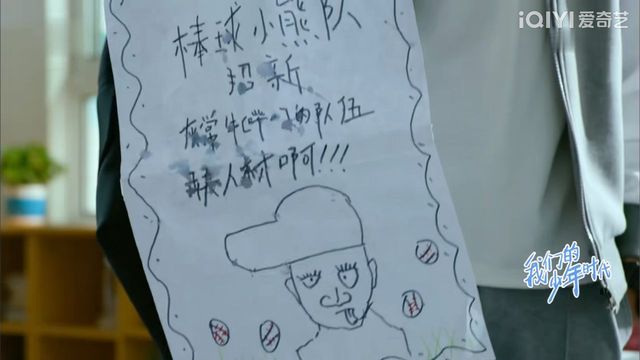 iQIYI 爱奇艺
棒球小熊队
招新
的队伍
人材啊!!!
我们的
少年时代